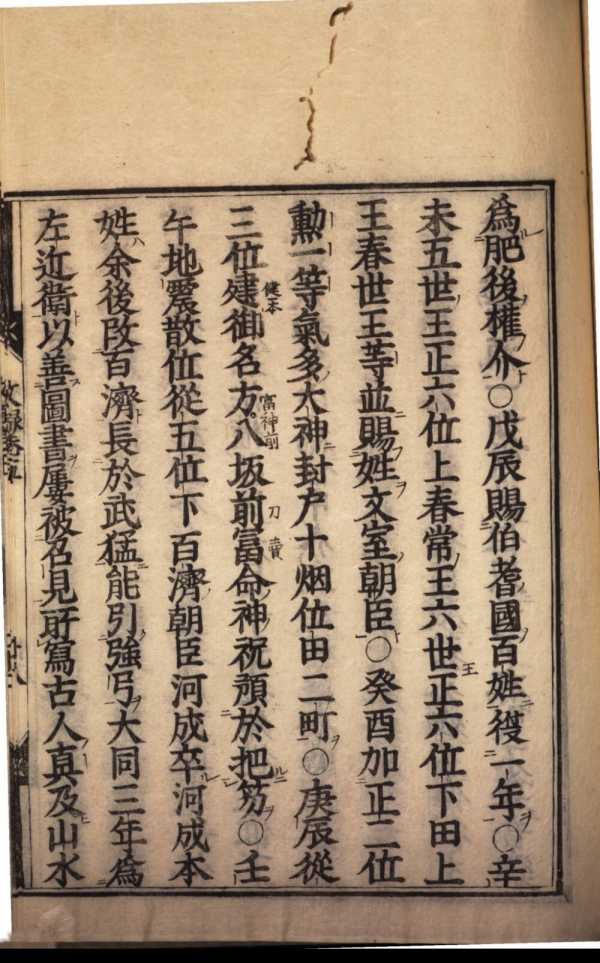 爲肥後權介○戊辰賜伯耆國百姓復一年○辛
未五世王正六位上春常王六世正六位下田上
王春世王等並賜姓文室朝臣○癸酉加正二位
勳一等氣多大神封戸十烟位田二町○庚辰從
三位建御名方八坂前富命神祝預於把笏○壬
午地震散位從五位下百濟朝臣河成卒河成本
姓余後改百濟長於武猛能引強弓大同三年爲
左近衛以善圖書屢被召見所寫古人真及山水